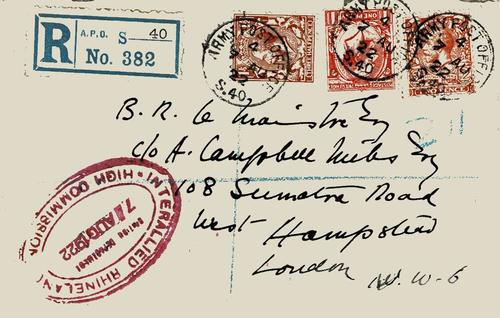 R A.P.O. S 40
No. 382
ARMY POST OFFICE
4 AU 22
S.40
ARMY POST OFFICE
4 AU 22
S.40
ARMY POST OFFICE
4 AU
B. R. Le Maistre Esq
c/o A. Campbell Esq
108 Sumatra Road
West Hampstead
London N.W-6
INTERALLIED RHINELAND HIGH COMMISSION
7 AUG 1922